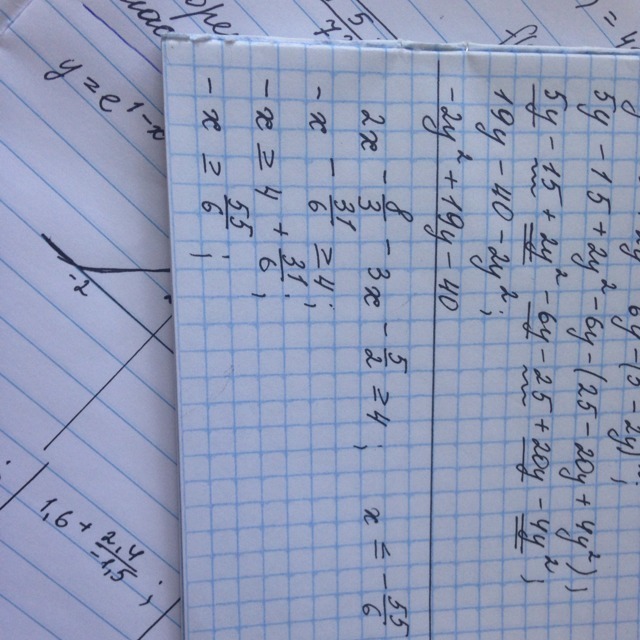 5y - 15 + 2y² - 6y - (25 - 20y + 4y²);
5y - 15 + 2y² - 6y - 25 + 20y - 4y²;
19y - 40 - 2y²;
-2y² + 19y - 40
2x - 8/3 - 3x - 5/2 ≥ 4; x ≤ -55/6
-x - 31/6 ≥ 4;
-x ≥ 4 + 31/6;
-x ≥ 55/6;
1,6 + 2,4/1,5;